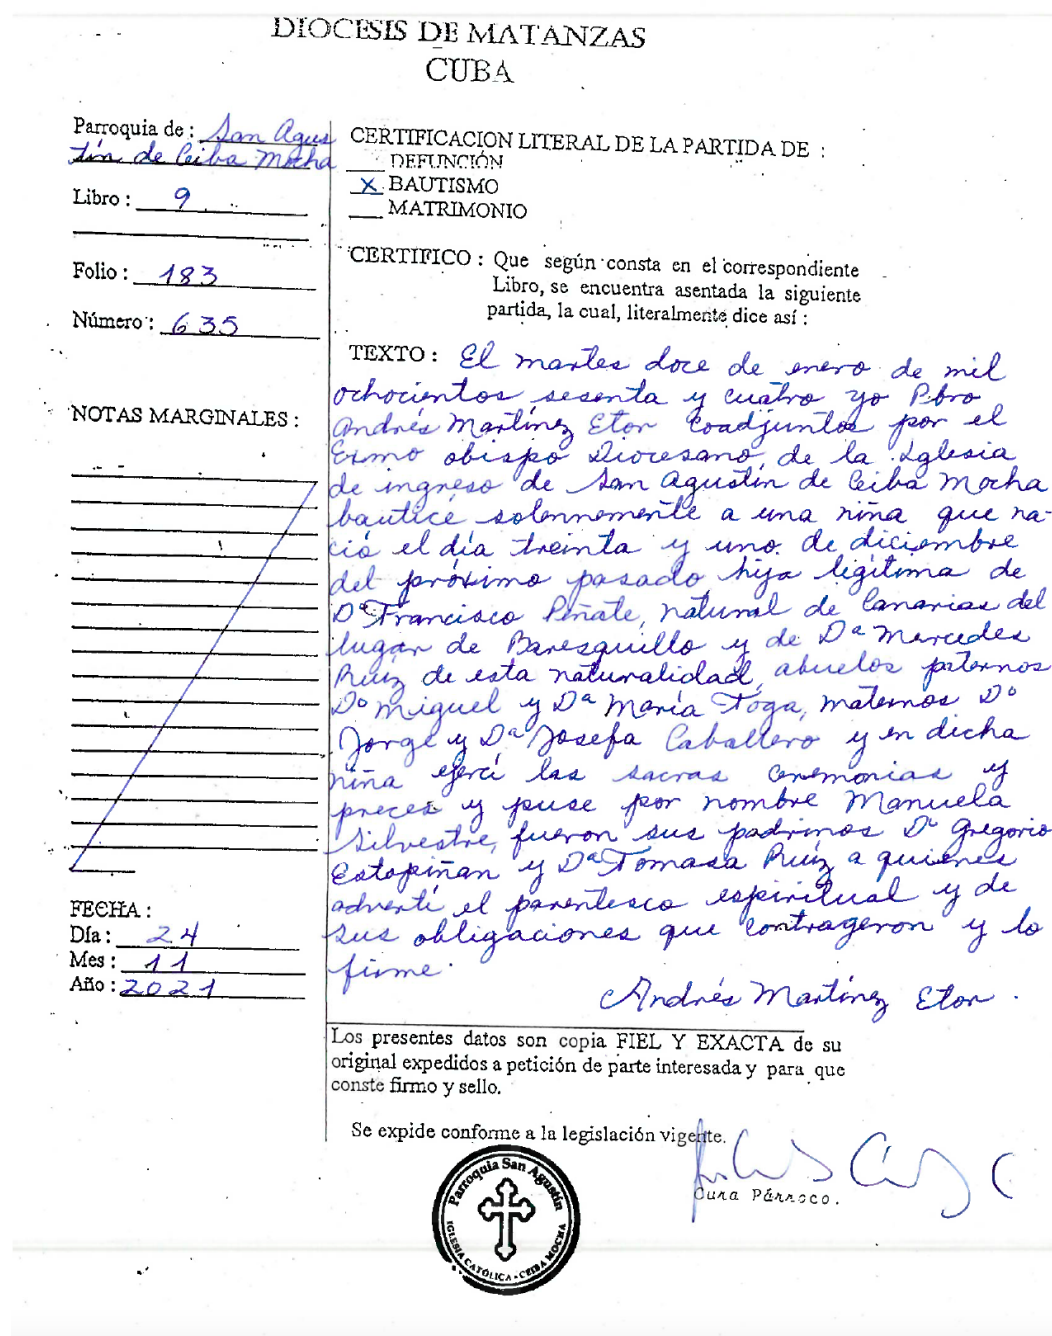 DIOCESIS DE MATANZAS
CUBA
Parroquia de : San Agus
tín de Ceiba Mocha
Libro : 9
Folio : 183
Número : 635
NOTAS MARGINALES :
FECHA :
Día : 24
Mes : 11
Año : 2021
CERTIFICACION LITERAL DE LA PARTIDA DE :
DEFUNCIÓN
X BAUTISMO
MATRIMONIO
CERTIFICO : Que según consta en el correspondiente
Libro, se encuentra asentada la siguiente
partida, la cual, literalmente dice así :
TEXTO : El martes doce de enero de mil
ochocientos sesenta y cuatro yo Pbro
Andrés Martínez Etor Coadjuntos por el
Exmo obispo Diocesano, de la Iglesia
de ingreso de San Agustín de Ceiba Mocha
bauticé solennemente a una niña que na-
ció el día treinta y uno de diciembre
del próximo pasado hija legítima de
Dº Francisco Peñate, natural de Canarias del
lugar de Baresquillo y de Dª Mercedes
Ruíz de esta naturalidad, abuelos paternos
Dº Miguel y Dª María Toga, maternos Dº
Jorge y Dª Josefa Caballero y en dicha
niña ejercí las sacras ceremonias y
preces y puse por nombre Manuela
Silvestre, fueron sus padrinos Dº Gregorio
Estopiñan y Dª Tomasa Ruíz a quienes
advertí el parentesco espiritual y de
sus obligaciones que contrageron y lo
firme.
Andrés Martínez Etor.
Los presentes datos son copia FIEL Y EXACTA de su
original expedidos a petición de parte interesada y para que
conste firmo y sello.
Se expide conforme a la legislación vigente.
Cura Párroco.
Parroquia San Agustín
IGLESIA CATÓLICA - CEIBA MOCHA